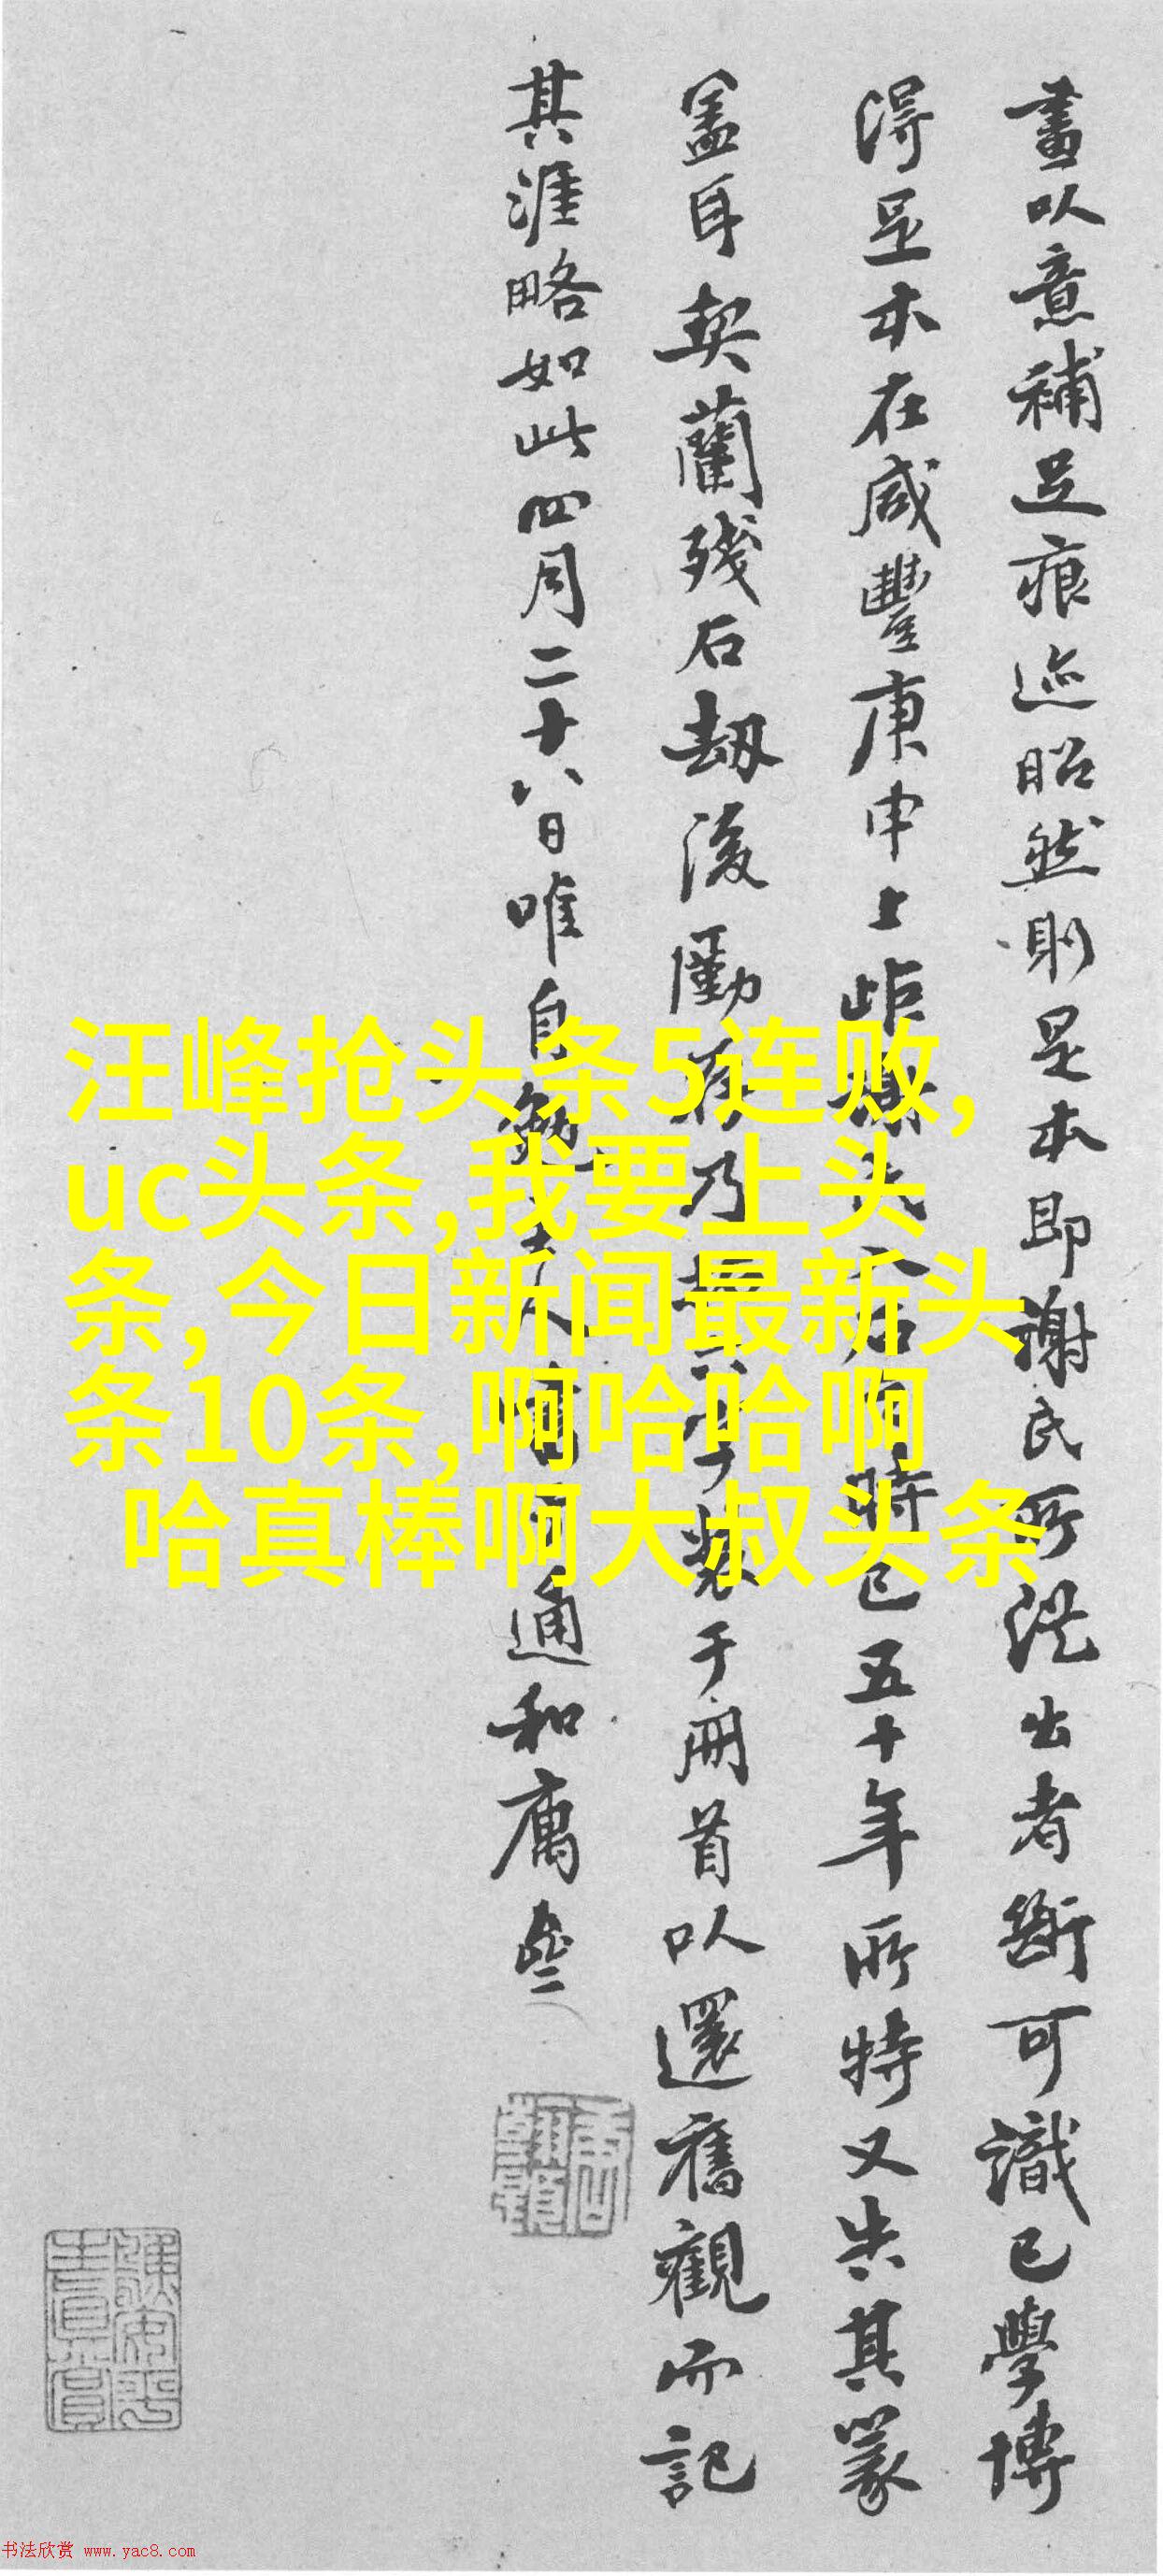 畫以意補足痕迹昭然則是本即謝氏所從出者斷可識已學博
得足本在咸豐庚申上距
時已五十年所特又失其篆
蓋耳契蘭殘石劫後勵存乃
裝于冊首以還舊觀而記
其涯略如此四月二十八日唯自勉
通和
汪峰抢头条5连败,
uc头条,我要上头
条,今日新闻最新头
条10条,啊哈哈啊
哈真棒啊大叔头条
书法欣赏 www.yac8.com